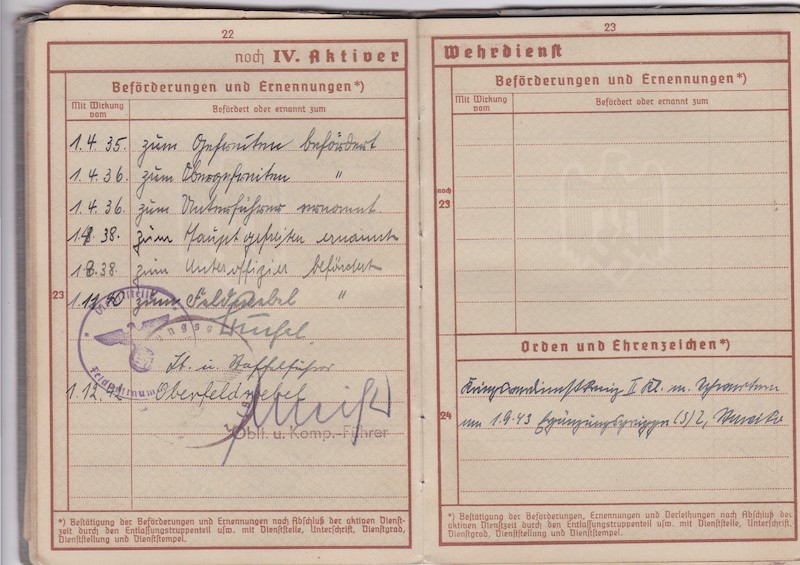 22
noch IV. Aktiver
Beförderungen und Ernennungen*)
Mit Wirkung vom
Befördert oder ernannt zum
1.4.35. zum Gefreiten befördert
1.4.36. zum Obergefreiten "
1.4.36. zum Unterführer ernannt.
38. zum Hauptgefreiten ernannt
38. zum Unteroffizier befördert
23
zum Feldwebel "
Lt. u. Staffelführer
1.12.42 Oberfeldwebel
Oblt. u. Komp.-Führer
*) Bestätigung der Beförderungen und Ernennungen nach Abschluß der aktiven Dienst-
zeit durch den Entlassungstruppenteil usw. mit Dienststelle, Unterschrift, Dienstgrad,
Dienststellung und Dienststempel.
23
Wehrdienst
Beförderungen und Ernennungen*)
Mit Wirkung vom
Befördert oder ernannt zum
noch 23
Orden und Ehrenzeichen*)
Kriegsverdienstkreuz II Kl. m. Schwertern
24
am 1.9.43 Ergänzungsgruppe (S) 2,
*) Bestätigung der Beförderungen, Ernennungen und Verleihungen nach Abschluß der
aktiven Dienstzeit durch den Entlassungstruppenteil usw. mit Dienststelle, Unterschrift,
Dienstgrad, Dienststellung und Dienststempel.